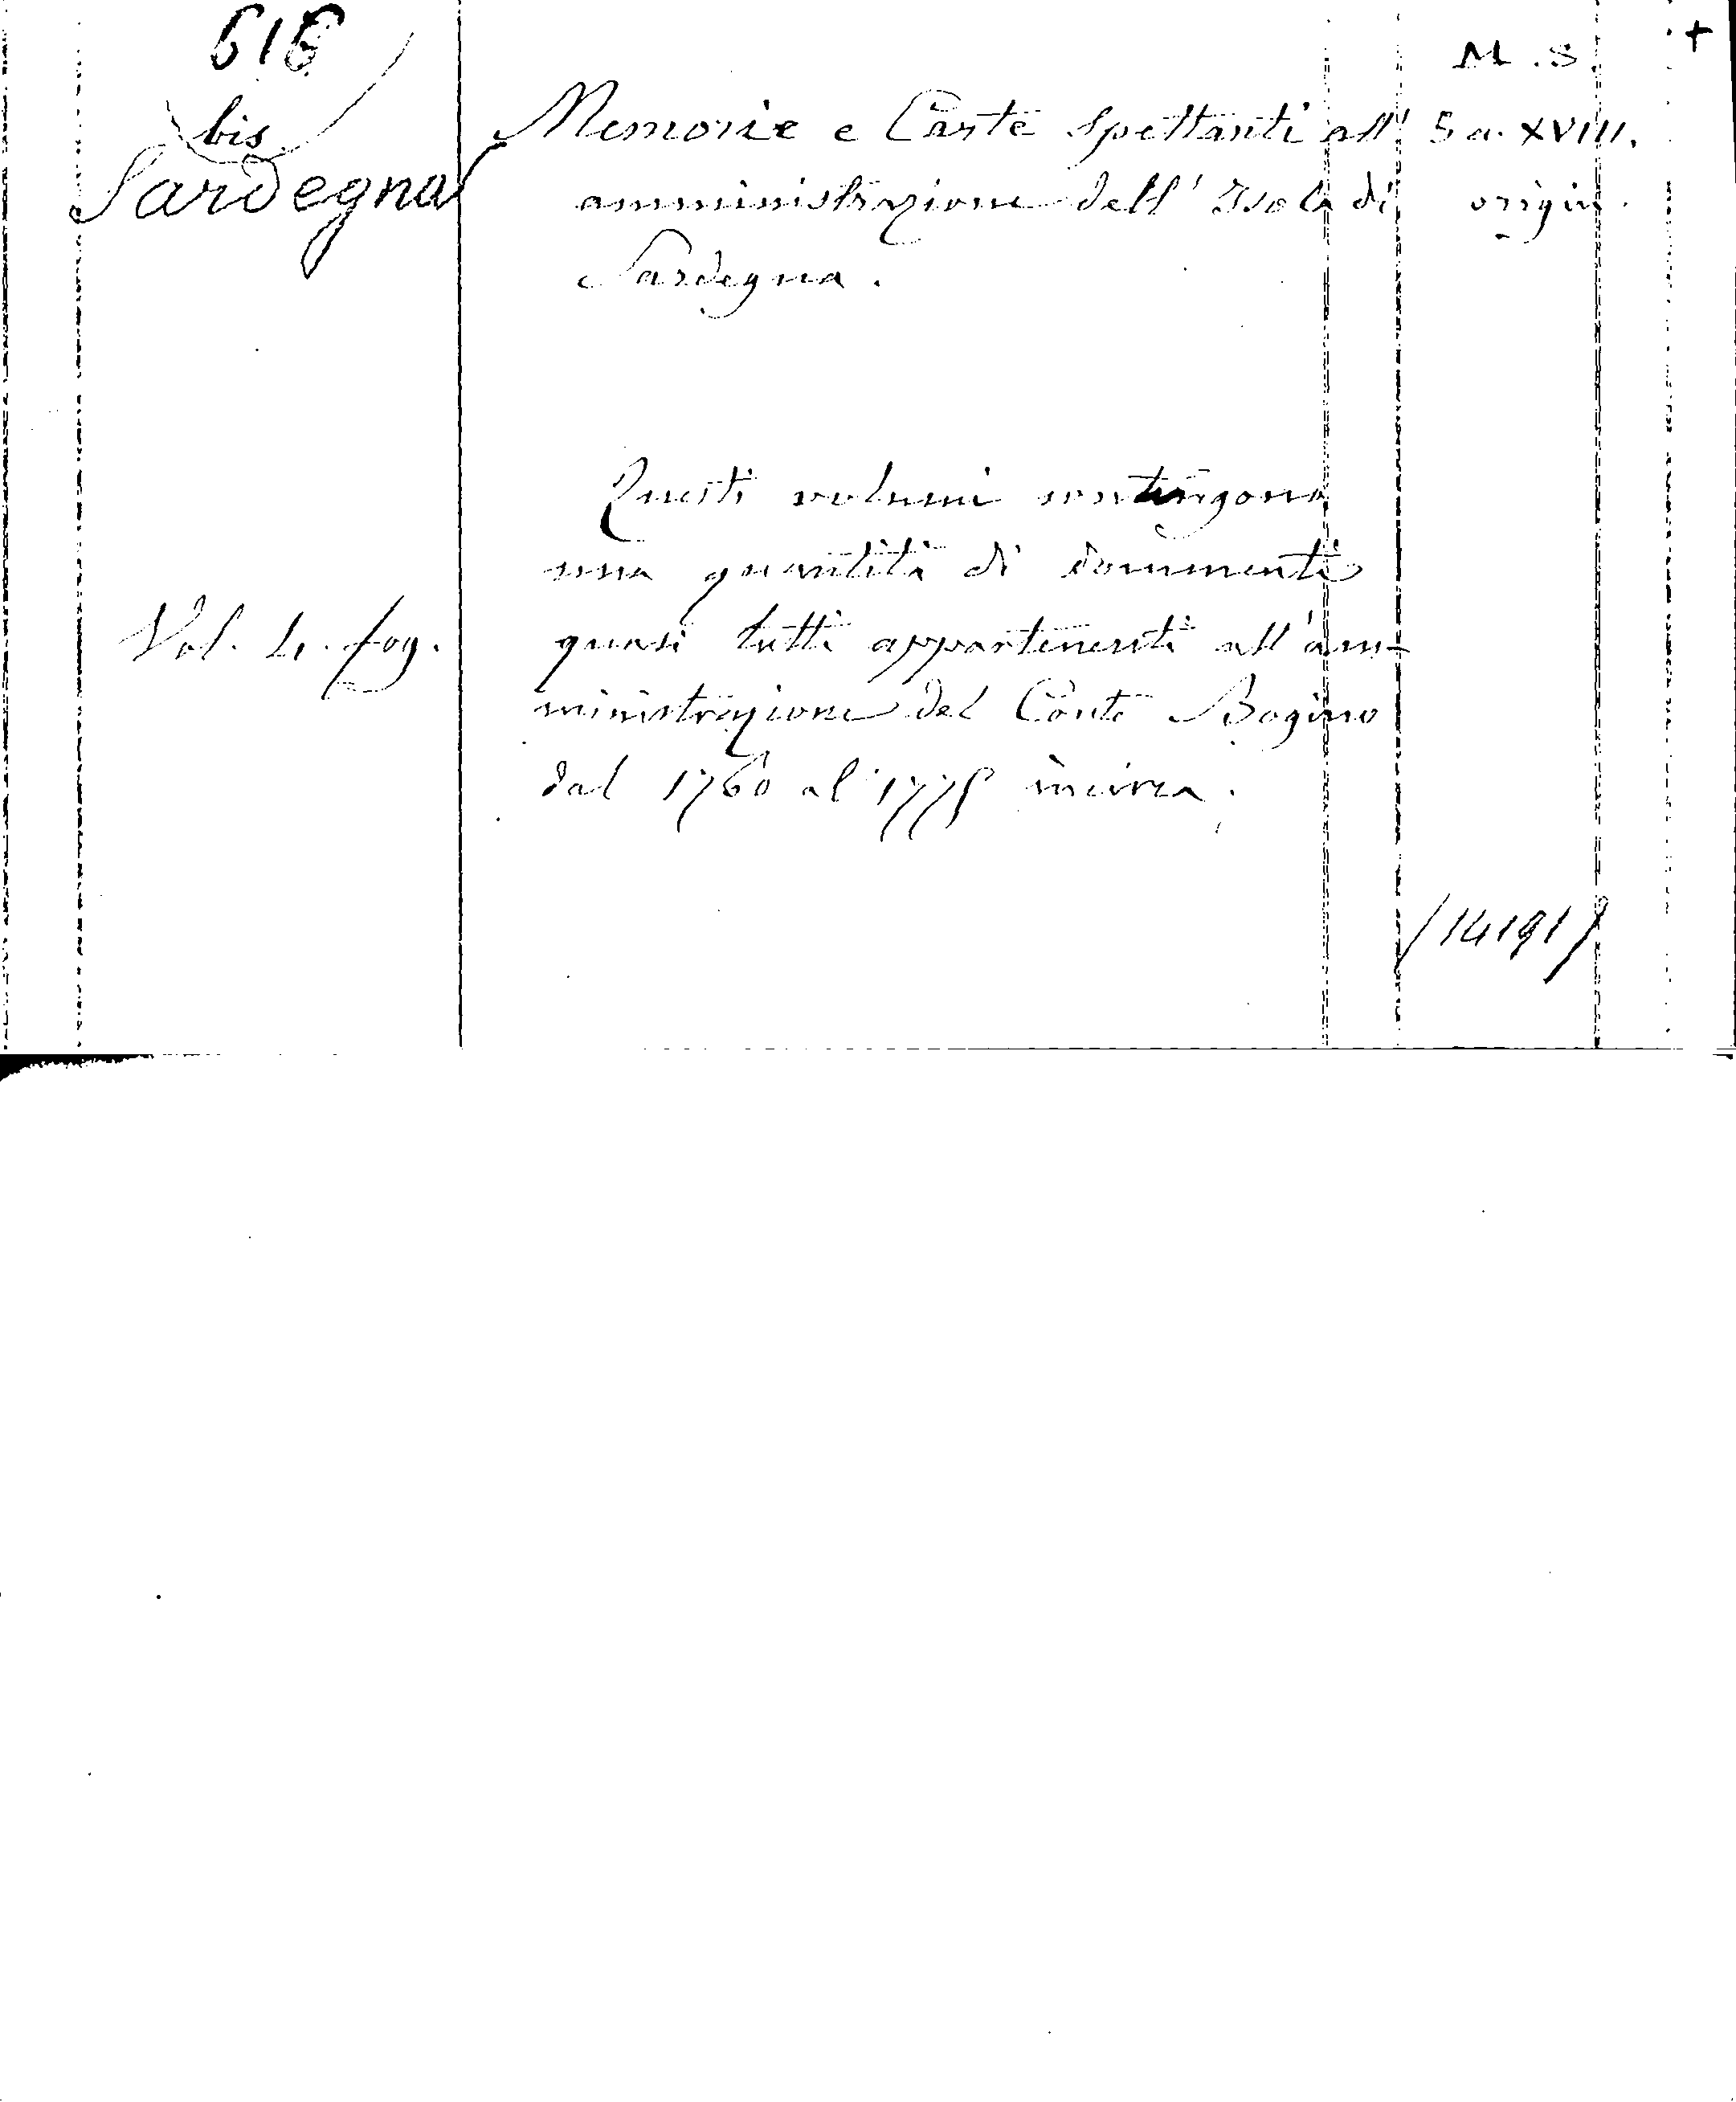 616
bis
Sardegna
M.S. +
Memorie e Carte Spettanti all'
amministrazione dell'Isola di
Sardegna.
S a. XVIII.
origin.
Vol. 4. fog.
Questi volumi contengono
una quantità di documenti
quasi tutti appartenenti all'am-
ministrazione del Conte Bogino
dal 1760 al 1775 incirca.
/14191/